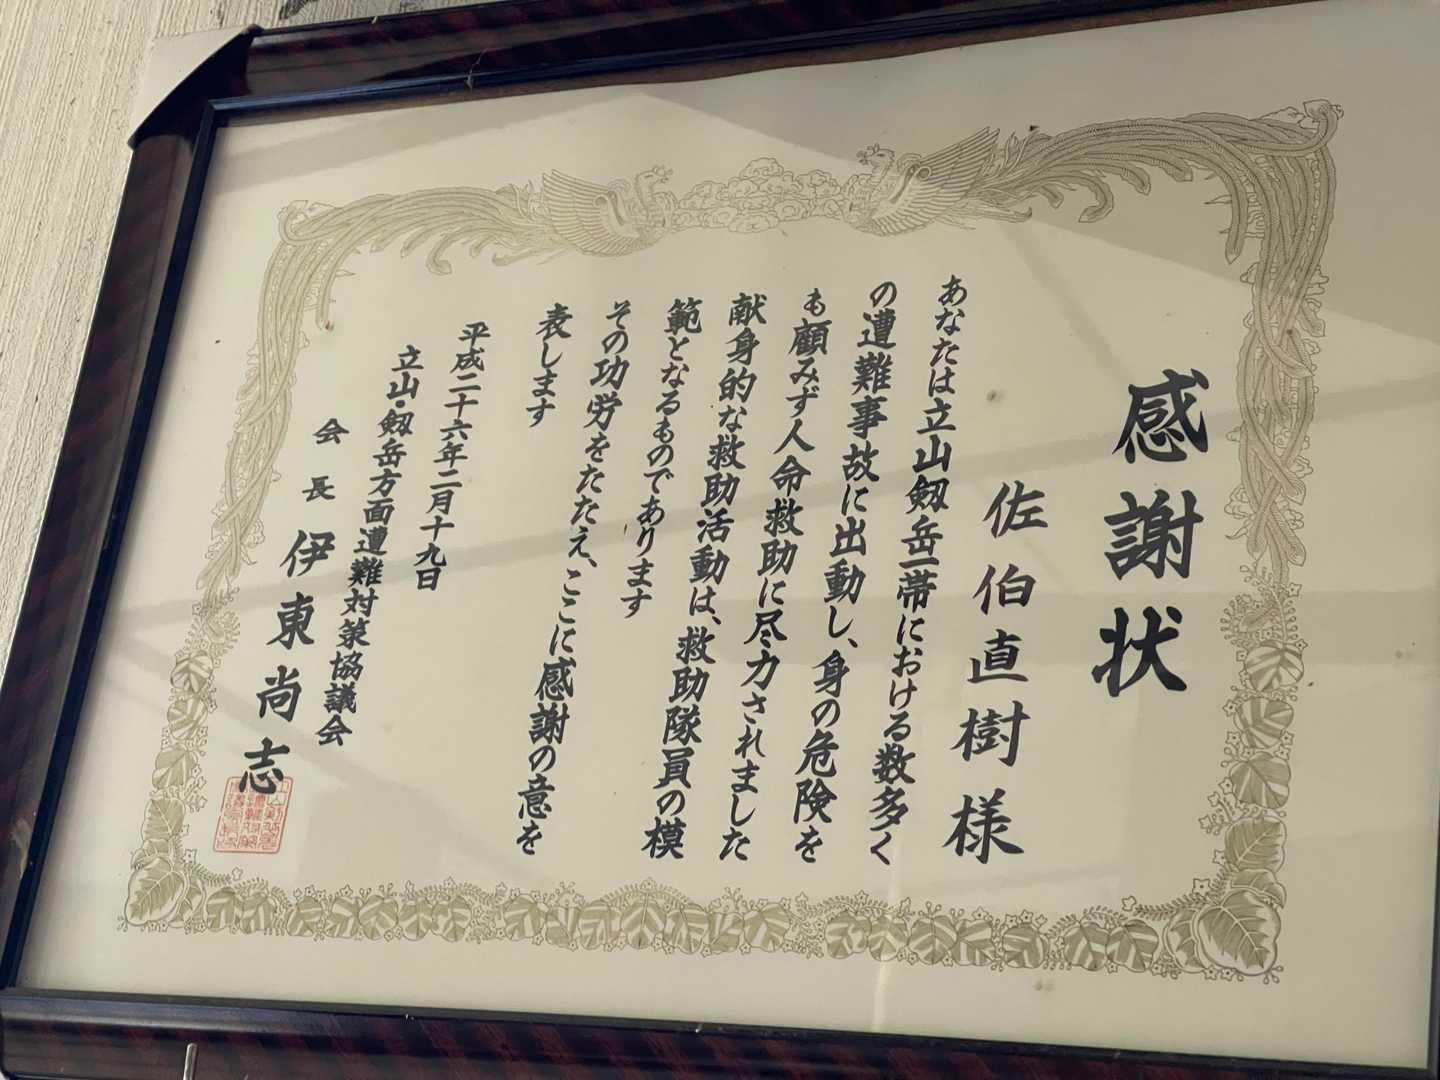 感謝状
佐伯直樹様
あなたは立山剱岳一帯における数多く
の遭難事故に出動し、身の危険を
も顧みず人命救助に尽力されました
献身的な救助活動は、救助隊員の模
範となるものであります
その功労をたたえ、ここに感謝の意を
表します
平成二十六年二月十九日
立山・剱岳方面遭難対策協議会
会長 伊東尚志